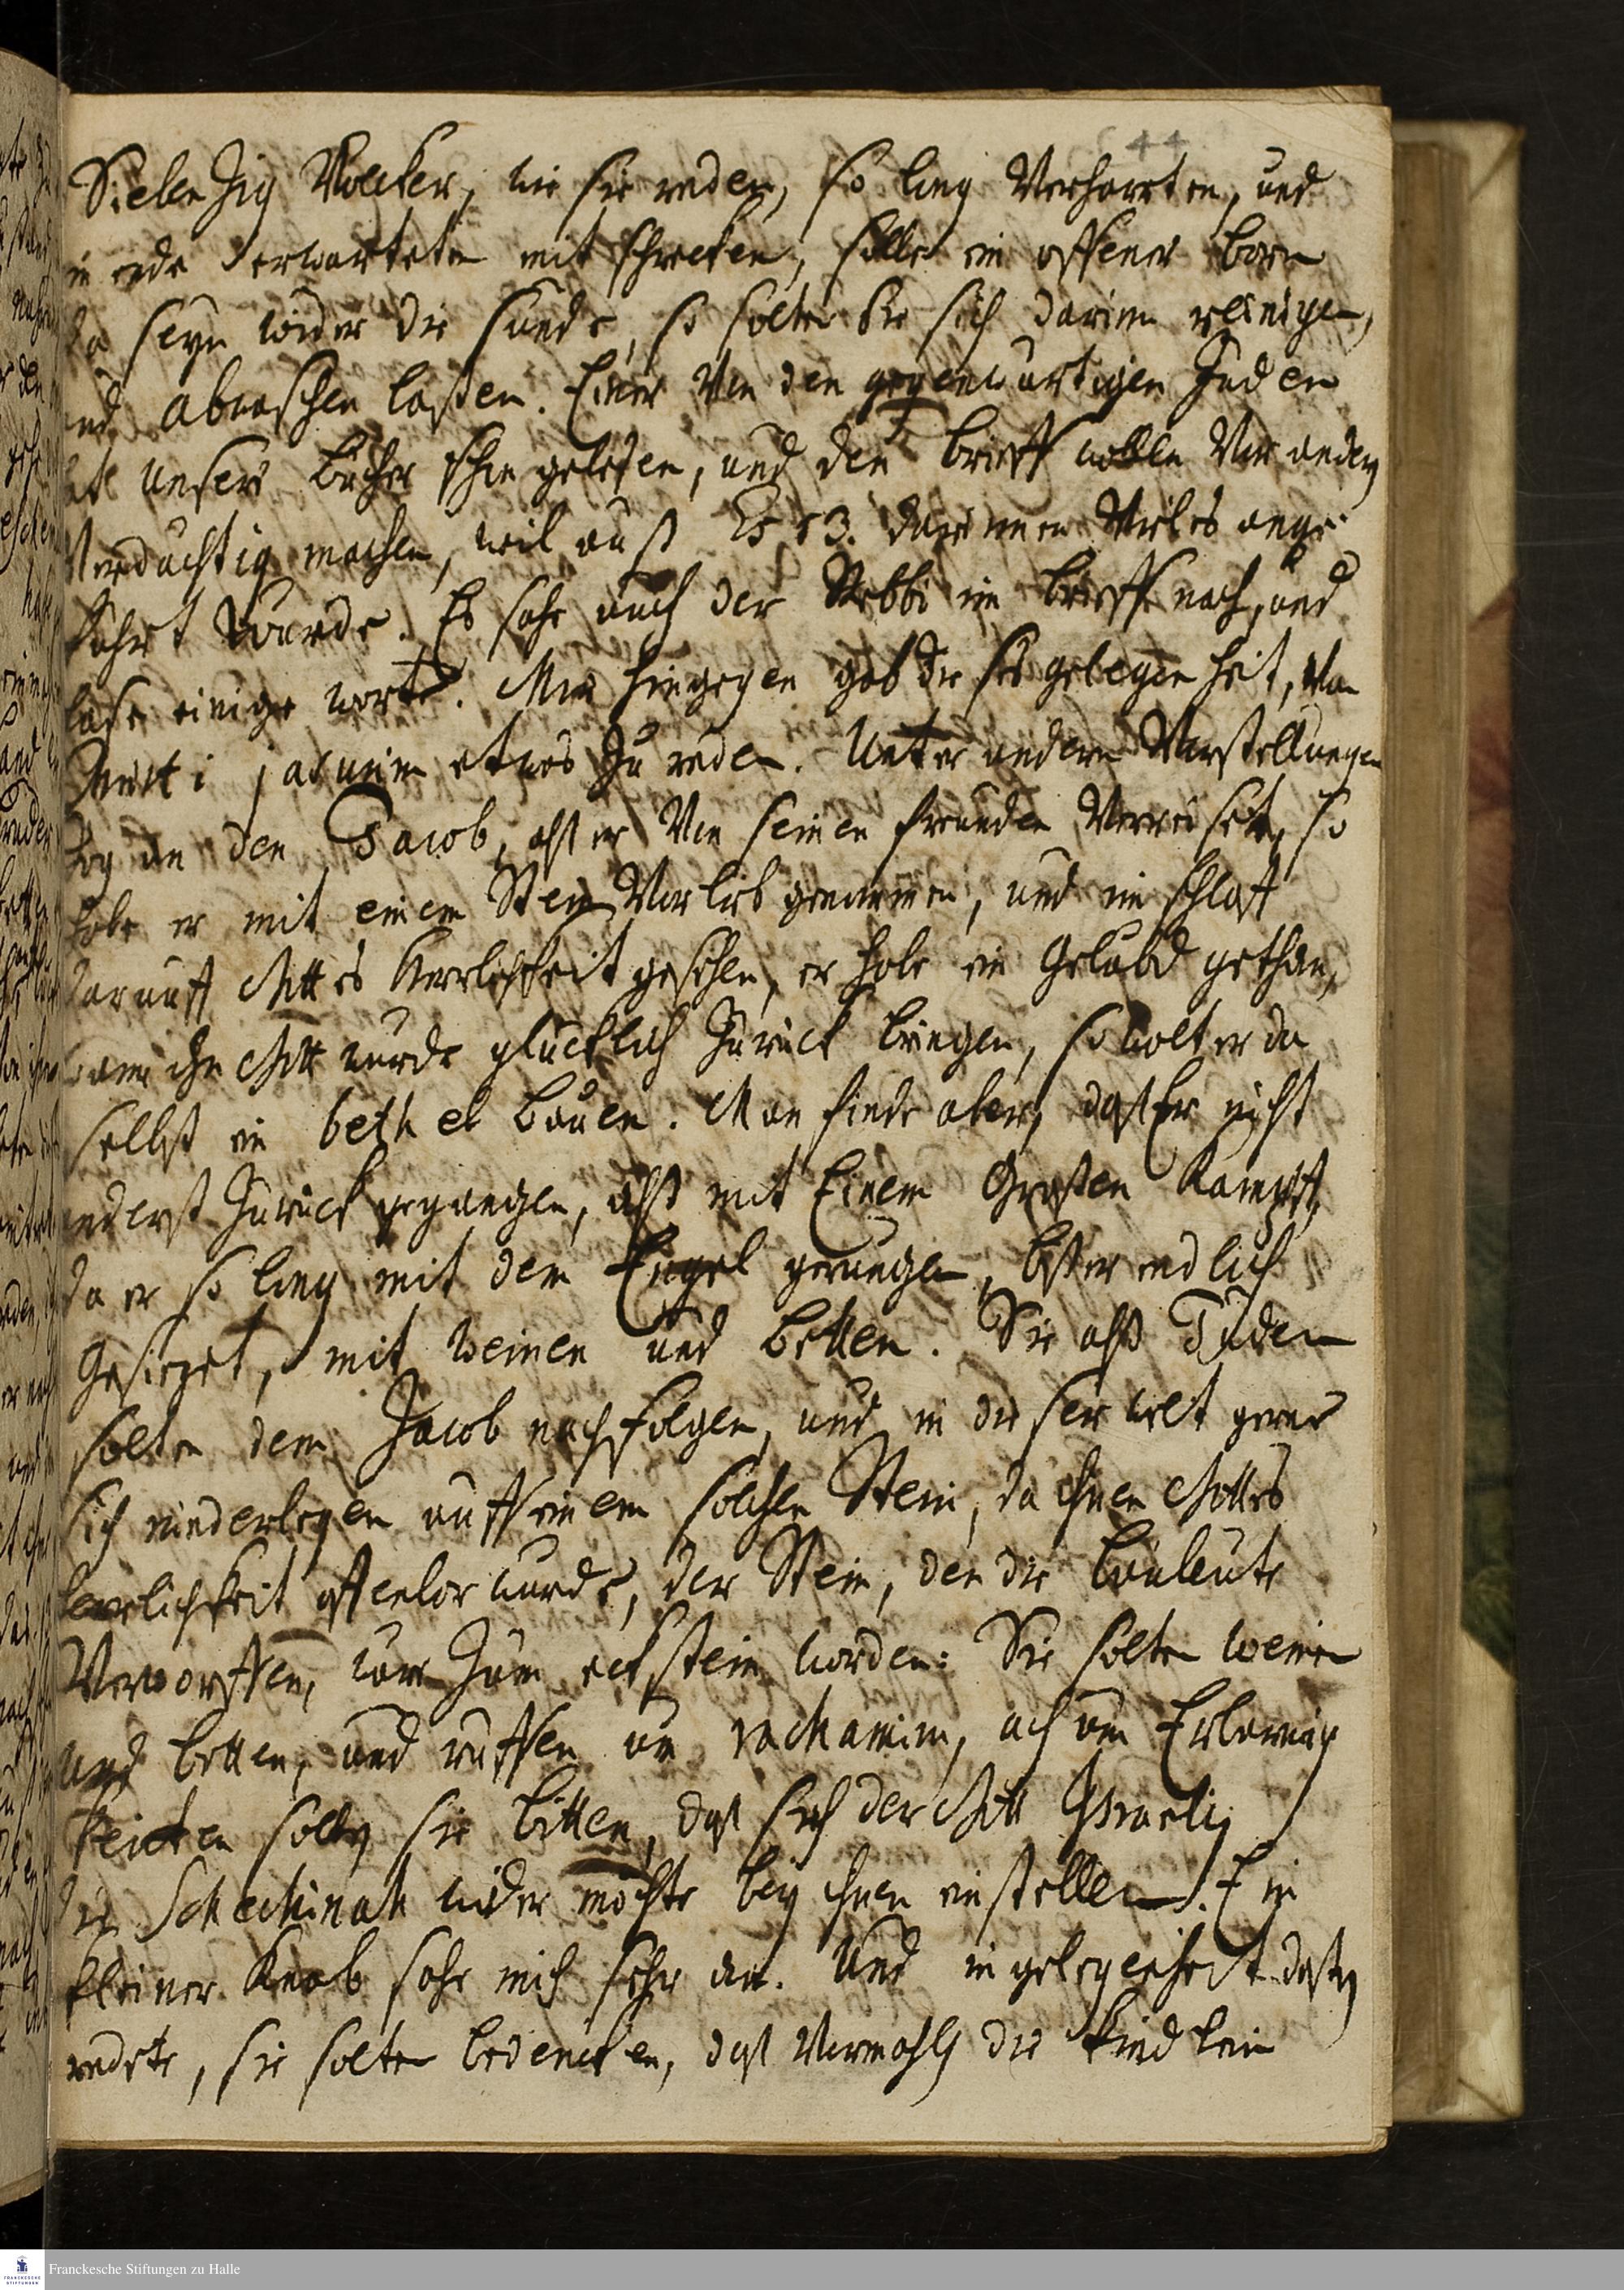 44
Siebenzig Voelcker, wie sie reden, so lang Verharrten, und
in ende erwarteten mit schrecken, solle ein offener born
da seyn wider die sunde, so solten Sie sich darinn reinigen,
und abwaschen laßen. Einer Von den gegenwartigen Juden
hat unsere bücher schon gelesen, und den brieff wollen Vor andern
Verdächtig machen, weil auß Es 53. darinnen Vieles ange¬
führt wurde. Es sahe auch der Rebbi im brieffe nach, und
lase einige worte. Mir hingegen gab dieses gelegenheit, Von
etwas zu reden. Unter andern Vorstellungen
zog an den Jacob, alß er Von seinen freunden Verreiset, so
habe er mit einem Stein Vor lieb genommen, und im schlaff
darauff Gottes Herrlichkeit gesehen, er habe ein Gelübd gethan,
wann ihn Gott würde glücklich zurück bringen, so wolt er da
selbst ein beth el bauen. Man finde aber, daß Er nicht
anderst zurück gegangen, alß mit Einem Großen Kampff,
da er so lang mit dem Engel gerungen, biß er endlich
Gesieget, mit weinen und betten. Sie alß Juden
solten dem Jacob nachfolgen, und in dieser welt gerne
sich niederlegen auff einem solchen Stein, da ihnen Gottes
herrlichkeit offenbar wurde, der Stein, den die bauleute
Verworffen, wär zum eckstein worden: Sie solten weinen
und betten, und ruffen um rachamim, ach um Erbarmig
keiten solten sie bitten, daß sich der Gott Israelis
der Schechinah wider möchte bey ihnen einstellen. Ein
kleiner Knab sahe mich sehr an. Und in gelegenheit deßen
redete, sie solten bedencken, daß Vormahls die kindlein
Franckesche Stiftungen zu Halle